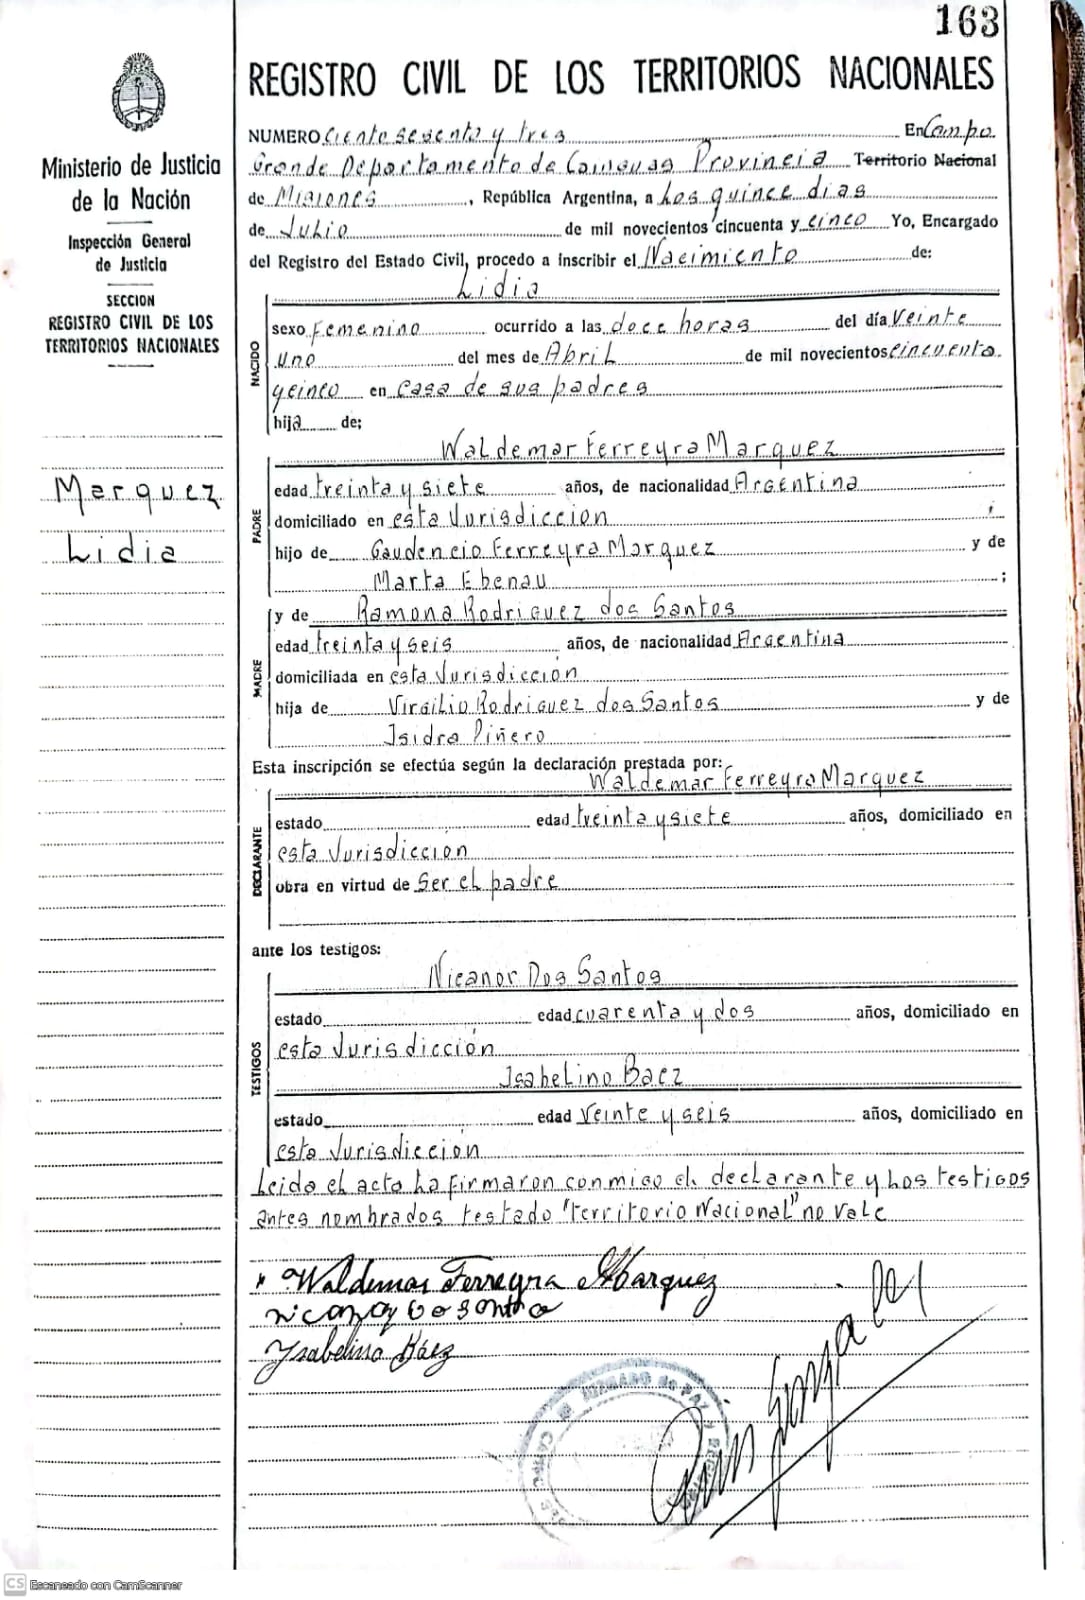 163
REGISTRO CIVIL DE LOS TERRITORIOS NACIONALES
Ministerio de Justicia
de la Nación
Inspección General
de Justicia
SECCION
REGISTRO CIVIL DE LOS
TERRITORIOS NACIONALES
Marquez
Lidia
NUMERO Ciento sesenta y tres En Campo
Grande Departamento de Cainguas Provincia Territorio Nacional
de Misiones, República Argentina, a Los quince dias
de Julio de mil novecientos cincuenta y cinco Yo, Encargado
del Registro del Estado Civil, procedo a inscribir el Nacimiento de:
NACIDO
Lidia
sexo Femenino ocurrido a las doce horas del día Veinte
uno del mes de Abril de mil novecientos cincuenta
y cinco en Casa de sus padres
hija de;
PADRE
Waldemar Ferreyra Marquez
edad treinta y siete años, de nacionalidad Argentina
domiciliado en esta Jurisdiccion ;
hijo de Gaudencio Ferreyra Marquez y de
Marta Ebenau ;
MADRE
y de Ramona Rodriguez dos Santos
edad treinta y seis años, de nacionalidad Argentina
domiciliada en esta Jurisdicción
hija de Virgilio Rodriguez dos Santos y de
Isidra Piñero
Esta inscripción se efectúa según la declaración prestada por:
DECLARANTE
Waldemar Ferreyra Marquez
estado edad treinta y siete años, domiciliado en
esta Jurisdiccion
obra en virtud de Ser el padre
ante los testigos:
TESTIGOS
Nicanor Dos Santos
estado edad cuarenta y dos años, domiciliado en
esta Jurisdicción
Isabelino Baez
estado edad Veinte y seis años, domiciliado en
esta Jurisdiccion
Leida el acta La firmaron conmigo el declarante y Los testigos
antes nombrados testado "territorio Nacional" no vale
Waldemar Ferreyra Marquez
Ysabelino Báez
JUZGADO DE PAZ Y
CS Escaneado con CamScanner